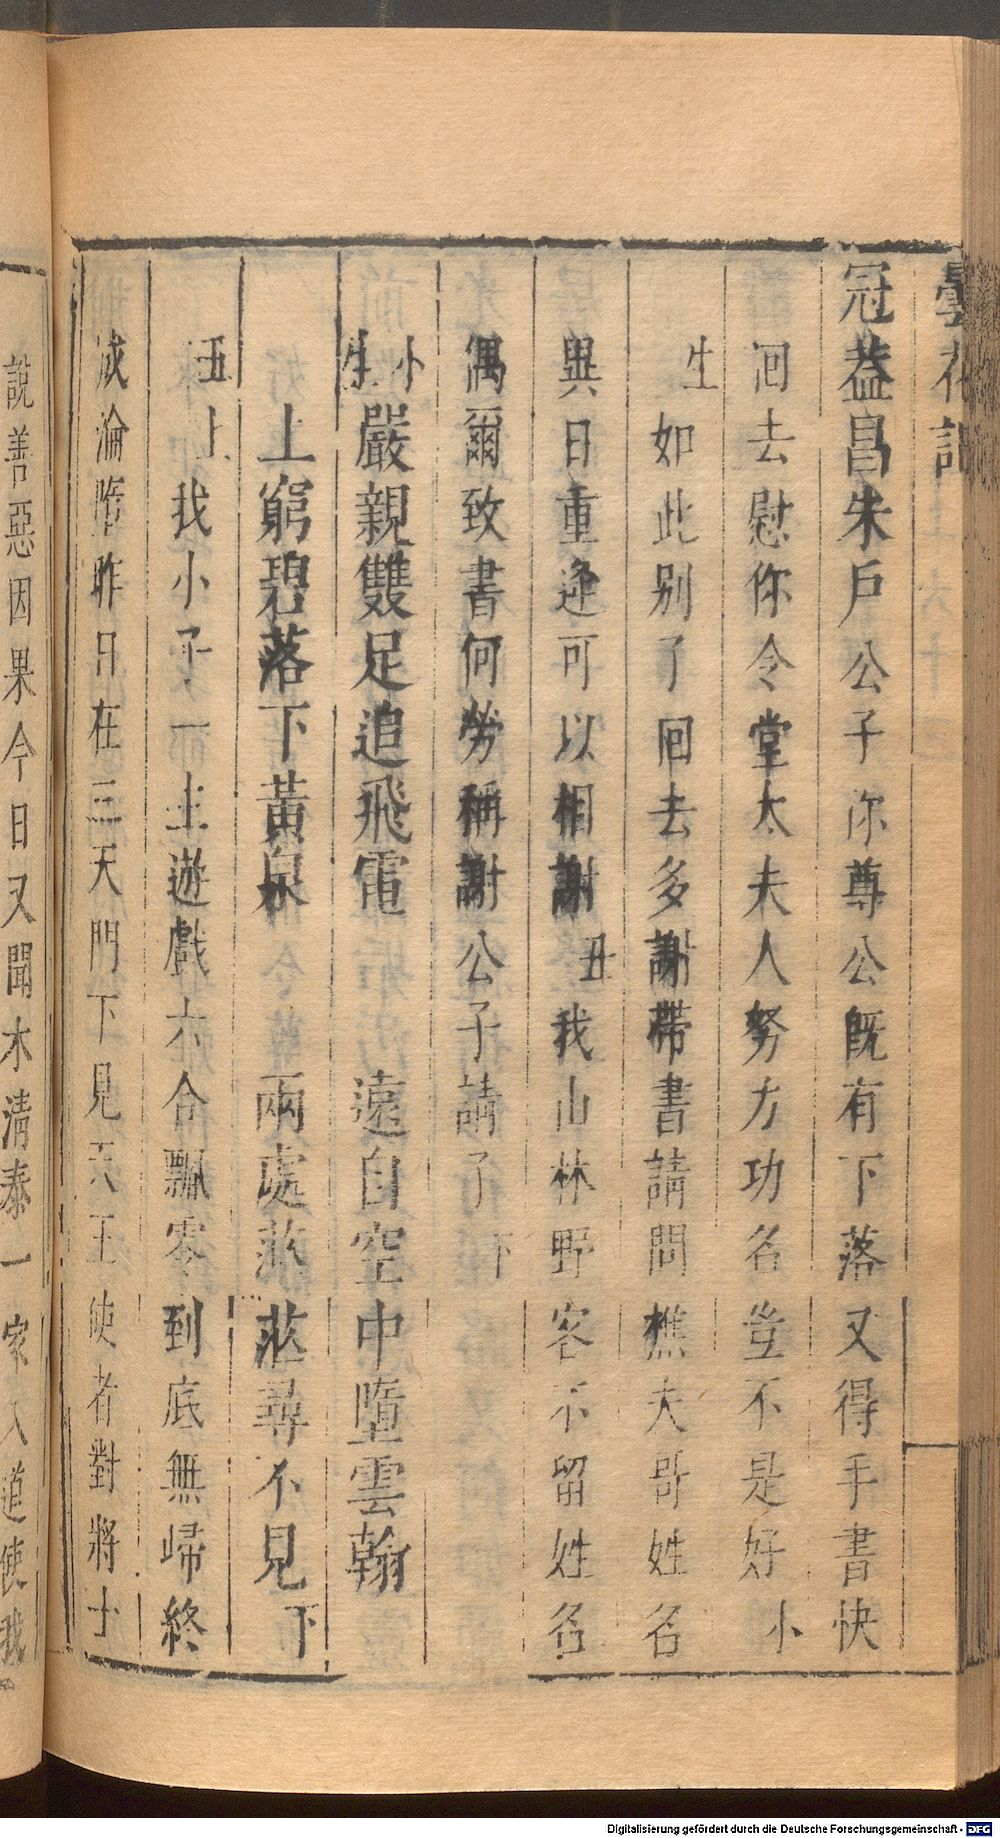 曇花記
冠葢昌朱戶公子你尊公旣有下落又得手書快
回去慰你令堂太夫人努力功名豈不是好小
生如此别了回去多謝帶書請問樵夫哥姓名
異日重逢可以相謝丑我山林野客不留姓名
偶爾致書何勞稱謝公子請了下
小生嚴親雙足追飛電 遠自空中墮雲翰
上窮碧落下黃泉 兩處茫茫尋不見下
丑上我小子一郎上遊戲六合飄零到底無歸終
成淪墮昨日在三天門下見天王使者對將士
說善惡因果今日又聞木淸泰一家入道使我
Digitalisierung gefördert durch die Deutsche Forschungsgemeinschaft - DFG